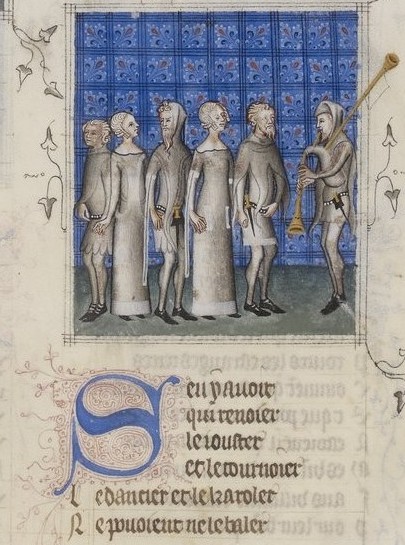 S en y auoit
qui renoier
le
et le tournoier
L e dancier et le karoler
N e pouoient ne le baler